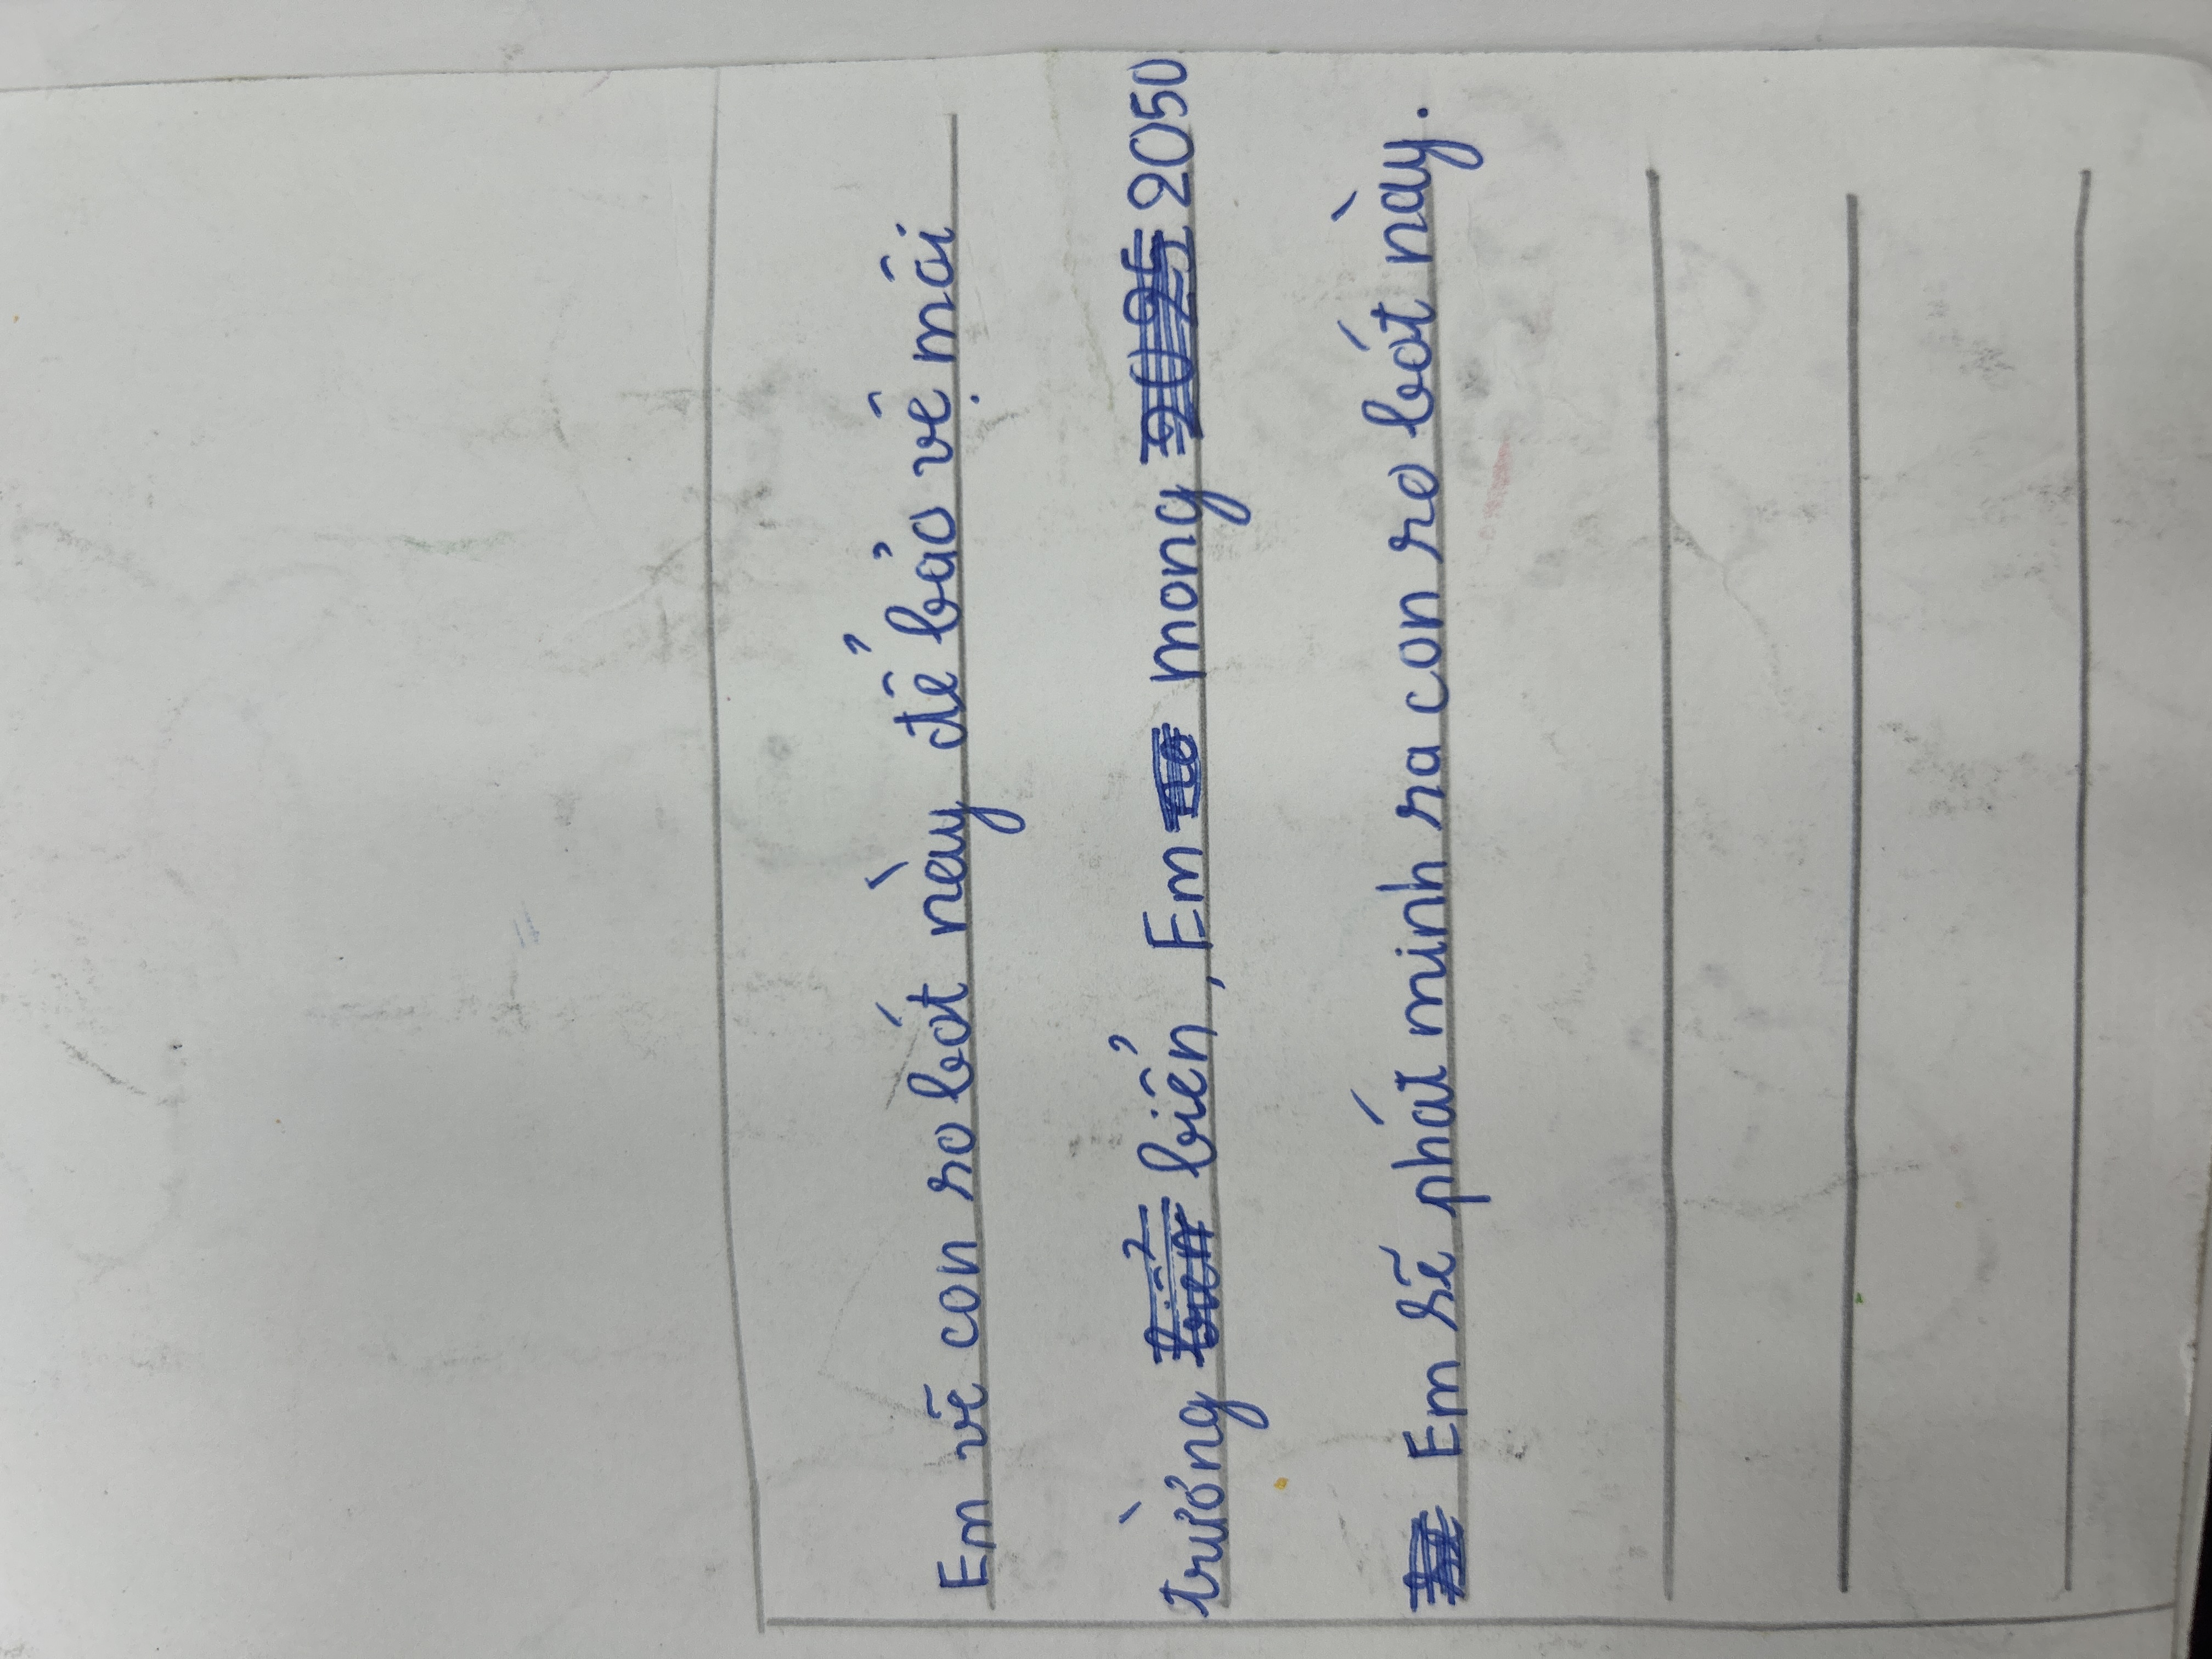 Em vẽ con rô bốt này để bảo vệ môi
trường biển, Em mong 2050
Em sẽ phát minh ra con rô bốt này.